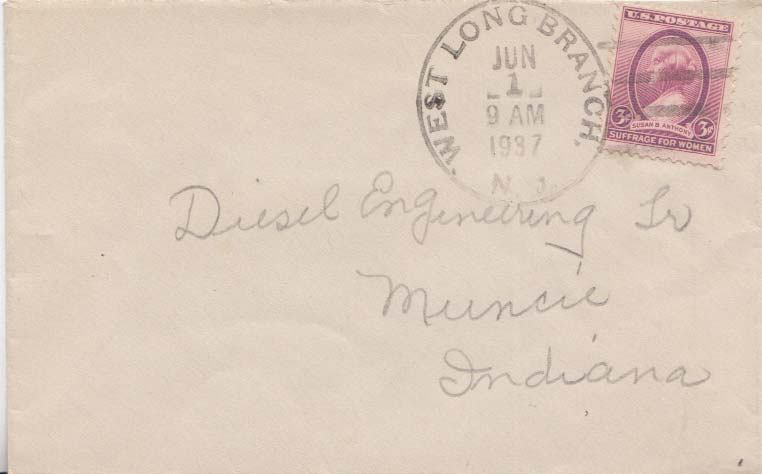 WEST LONG BRANCH.
JUN
1
9 AM
1937
N. J.
U.S. POSTAGE
3¢ 3¢
SUSAN B. ANTHONY
SUFFRAGE FOR WOMEN
Diesel Engineering
Muncie
Indiana